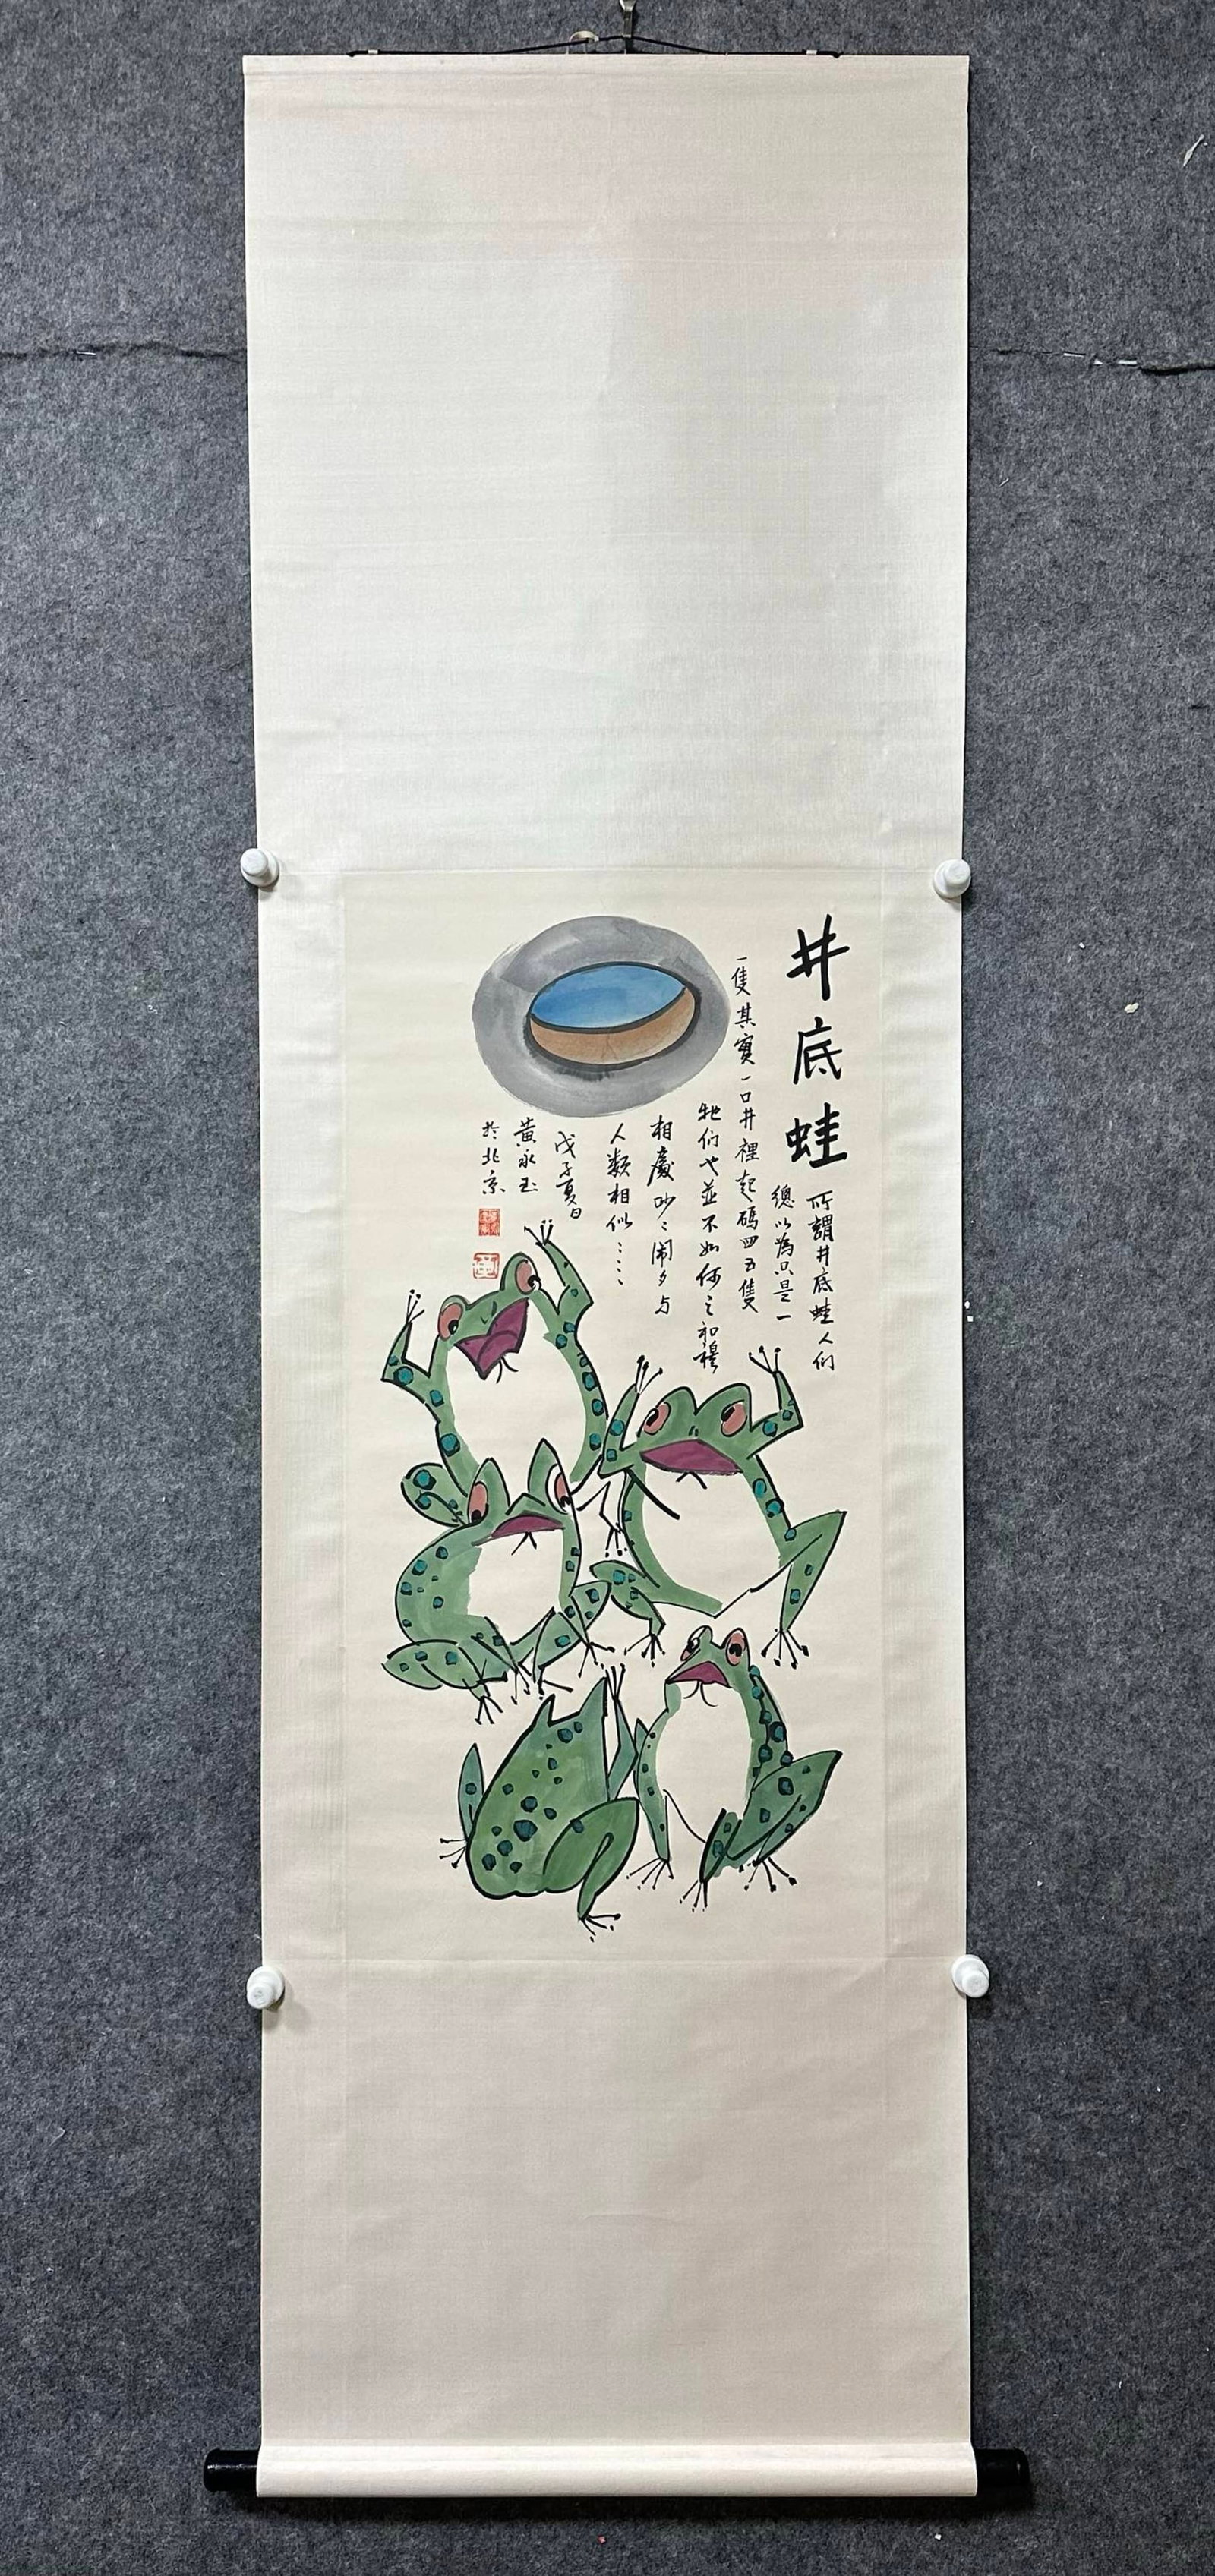 井底蛙
所謂井底蛙人们
總以為只是一
一隻其實一口井裡起碼四五隻
牠们也並不如何之和穆
相處吵〻闹〻与
人類相似……
戊子夏日
黄永玉
於北京